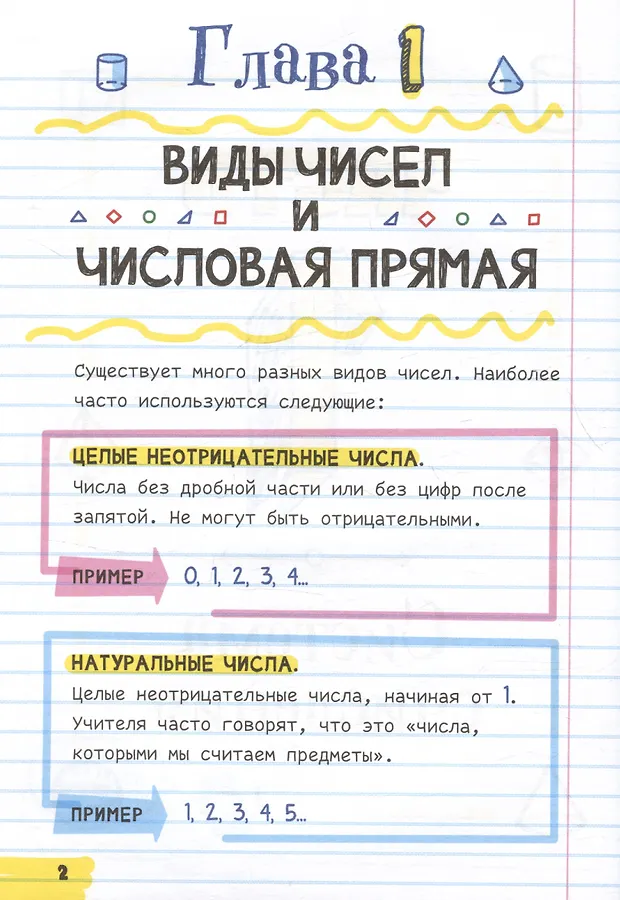 Глава 1
ВИДЫ ЧИСЕЛ
И
ЧИСЛОВАЯ ПРЯМАЯ
Существует много разных видов чисел. Наиболее
часто используются следующие:
ЦЕЛЫЕ НЕОТРИЦАТЕЛЬНЫЕ ЧИСЛА.
Числа без дробной части или без цифр после
запятой. Не могут быть отрицательными.
ПРИМЕР 0, 1, 2, 3, 4...
НАТУРАЛЬНЫЕ ЧИСЛА.
Целые неотрицательные числа, начиная от 1.
Учителя часто говорят, что это «числа,
которыми мы считаем предметы».
ПРИМЕР 1, 2, 3, 4, 5...
2